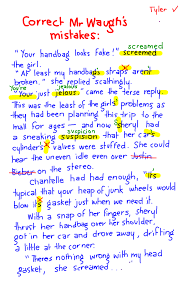 Tyler ✓
Correct Mr Waugh's
mistakes:
screamed
"Your handbag looks fake!" screemed
the girl.
"At least my handbags straps arent
broken." she replied scathingly.
You're jealous
"Your just jelous." came the terse reply.
This was the least of the girls' problems as
they had been planning this trip to the
mall for ages — and now sheryl had
suspicion
a sneaking suspition that her car's
cylinder's valves were stuffed. She could
hear the uneven idle even over Justin
Bieber on the stereo.
Chantelle had had enough, "It's
typical that your heap of junk wheels would
blow it's gasket just when we need it.
With a snap of her fingers, sheryl
thrust her handbag over her shoulder,
got in her car and drove away, drifting
a little at the corner.
"Theres nothing wrong with my head
gasket, she screamed...